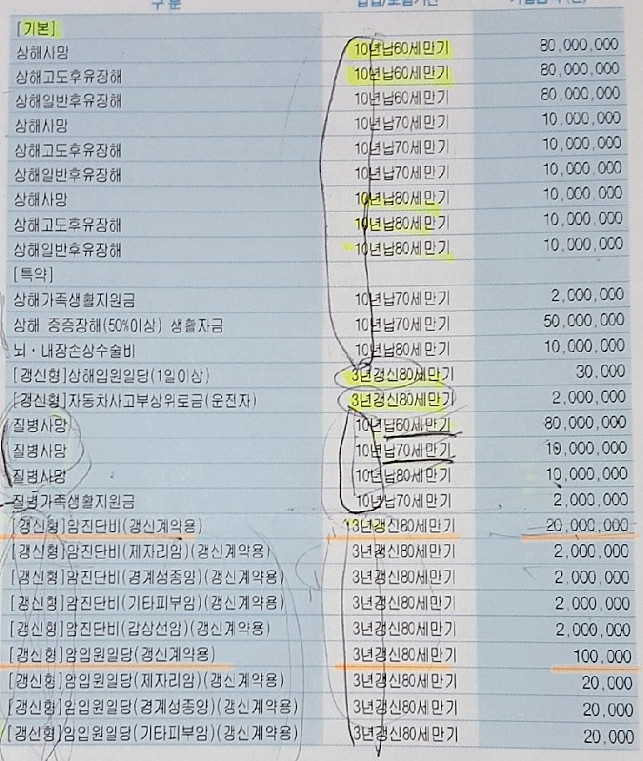 구 분
[기본]
상해사망 10년납60세만기 80,000,000
상해고도후유장해 10년납60세만기 80,000,000
상해일반후유장해 10년납60세만기 80,000,000
상해사망 10년납70세만기 10,000,000
상해고도후유장해 10년납70세만기 10,000,000
상해일반후유장해 10년납70세만기 10,000,000
상해사망 10년납80세만기 10,000,000
상해고도후유장해 10년납80세만기 10,000,000
상해일반후유장해 10년납80세만기 10,000,000
[특약]
상해가족생활지원금 10년납70세만기 2,000,000
상해 중증장해(50%이상) 생활자금 10년납70세만기 50,000,000
뇌·내장손상수술비 10년납80세만기 10,000,000
[갱신형]상해입원일당(1일이상) 3년갱신80세만기 30,000
[갱신형]자동차사고부상위로금(운전자) 3년갱신80세만기 2,000,000
질병사망 10년납60세만기 80,000,000
질병사망 10년납70세만기 10,000,000
질병사망 10년납80세만기 10,000,000
질병가족생활지원금 10년납70세만기 2,000,000
[갱신형]암진단비(갱신계약용) 3년갱신80세만기 20,000,000
[갱신형]암진단비(제자리암)(갱신계약용) 3년갱신80세만기 2,000,000
[갱신형]암진단비(경계성종양)(갱신계약용) 3년갱신80세만기 2,000,000
[갱신형]암진단비(기타피부암)(갱신계약용) 3년갱신80세만기 2,000,000
[갱신형]암진단비(갑상선암)(갱신계약용) 3년갱신80세만기 2,000,000
[갱신형]암입원일당(갱신계약용) 3년갱신80세만기 100,000
[갱신형]암입원일당(제자리암)(갱신계약용) 3년갱신80세만기 20,000
[갱신형]암입원일당(경계성종양)(갱신계약용) 3년갱신80세만기 20,000
[갱신형]암입원일당(기타피부암)(갱신계약용) 3년갱신80세만기 20,000